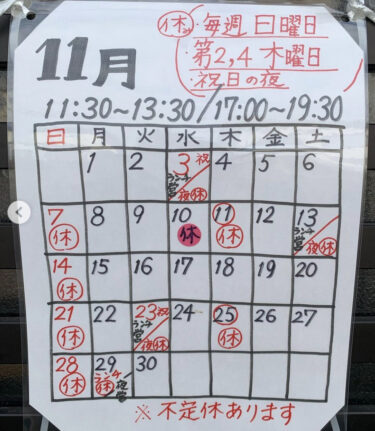 11月
㊡・毎週日曜日
第2,4木曜日
祝日の夜
11:30~13:30/17:00~19:30
日 月 火 水 木 金 土
1 2 3祝 4 5 6
ランチ営/夜休
7 8 9 10 11 12 13
休 休 休 ランチ営/夜休
14 15 16 17 18 19 20
休
21 22 23祝 24 25 26 27
休 ランチ営/夜休 休
28 29 30
休 夜営
※不定休あります